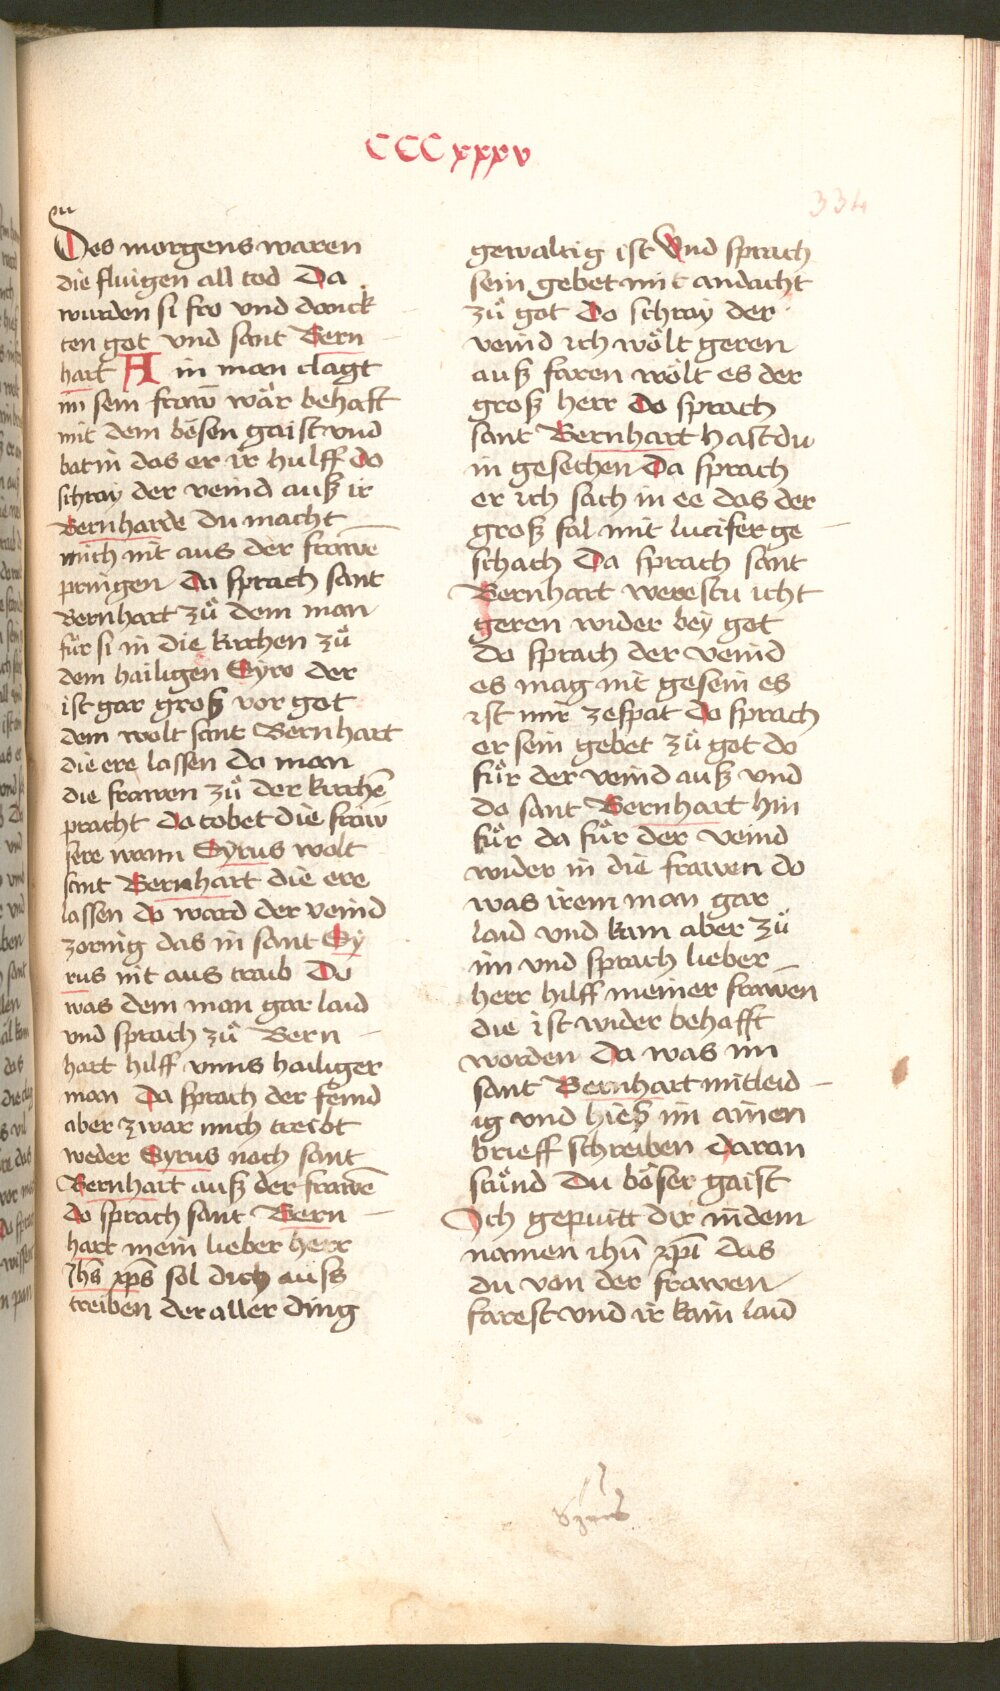 CCCxxxv
334
Des morgens waren
die fluigen all tod Da
wurden si fro vnd danck
ten got vnd sant Bern
hart Ain man clagt
im sein fraw̄ wär behaft
mit dem bösen gaist vnd
bat in das er ir hulff do
schray der veind auß ir
Bernharde du macht
mich nit aus der frawe
pringen Da sprach sant
Bernhart zů dem man
für si in die kirchen zů
dem hailigen Cyro der
ist gar groß vor got
dem wolt sant Bernhart
die ere lassen da man
die frawen zů der kirchē
pracht do tobet die fraw
sere wann Cyrus wolt
sant Bernhart die ere
lassen do ward der veind
zornig das in sant Cy
rus nit aus traib Do
was dem man gar laid
vnd sprach zů Bern
hart hilff vnns hailiger
man Da sprach der feind
aber zwar mich treibt
weder Cyrus noch sant
Bernhart auß der frawē
do sprach sant Bern
hart mein lieber herr
Jhs xp̄s sol dich auss
treiben der aller ding
gewaltig ist Vnd sprach
sein gebet mit andacht
zů got Do schray der
veind ich wölt geren
auß faren wölt es der
groß herr Do sprach
sant Bernhart hastdu
in gesechen Da sprach
er ich sach in ee das der
groß fal mit lucifer ge
schach Da sprach sant
Bernhart werestu icht
geren wider bey got
do sprach der veind
es mag nit gesein es
ist mir zespat Do sprach
er sein gebet zů got do
fůr der veind auß vnd
do sant Bernhart hin
fůr da fůr der veind
wider in die frawen do
was irem man gar
laid vnd kam aber zů
im vnd sprach lieber
herr hilff meiner frawen
die ist wider behafft
worden Da was im
sant Bernhart mitleid
ig vnd hieß im ainen
brieff schreiben daran
stůnd Du böser gaist
Ich gepuitt dir in dem
namen ihū xp̄i das
du von der frawen
farest vnd ir kain laid